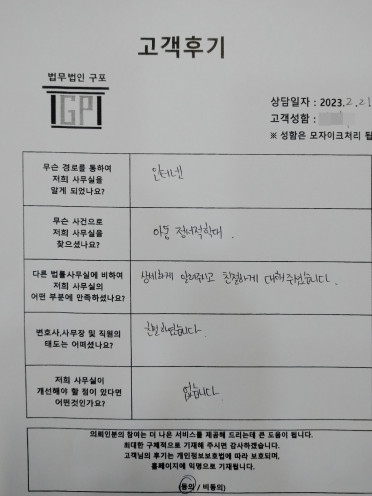 고객후기
법무법인 구포
GP
상담일자 : 2023.2.21
고객성함 :
※ 성함은 모자이크처리 됩
무슨 경로를 통하여
저희 사무실을
알게 되었나요?
인터넷
무슨 사건으로
저희 사무실을
찾으셨나요?
아동 정서적학대.
다른 법률사무실에 비하여
저희 사무실의
어떤 부분에 만족하셨나요?
상세하게 알려주시고 친절하게 대해주셨습니다.
변호사,사무장 및 직원의
태도는 어떠셨나요?
친절하셨습니다.
저희 사무실이
개선해야 할 점이 있다면
어떤것인가요?
없습니다
의뢰인분의 참여는 더 나은 서비스를 제공해 드리는데 큰 도움이 됩니다.
최대한 구체적으로 기재해 주시면 감사하겠습니다.
고객님의 후기는 개인정보보호법에 따라 보호되며,
홈페이지에 익명으로 기재됩니다.
(동의 / 비동의)